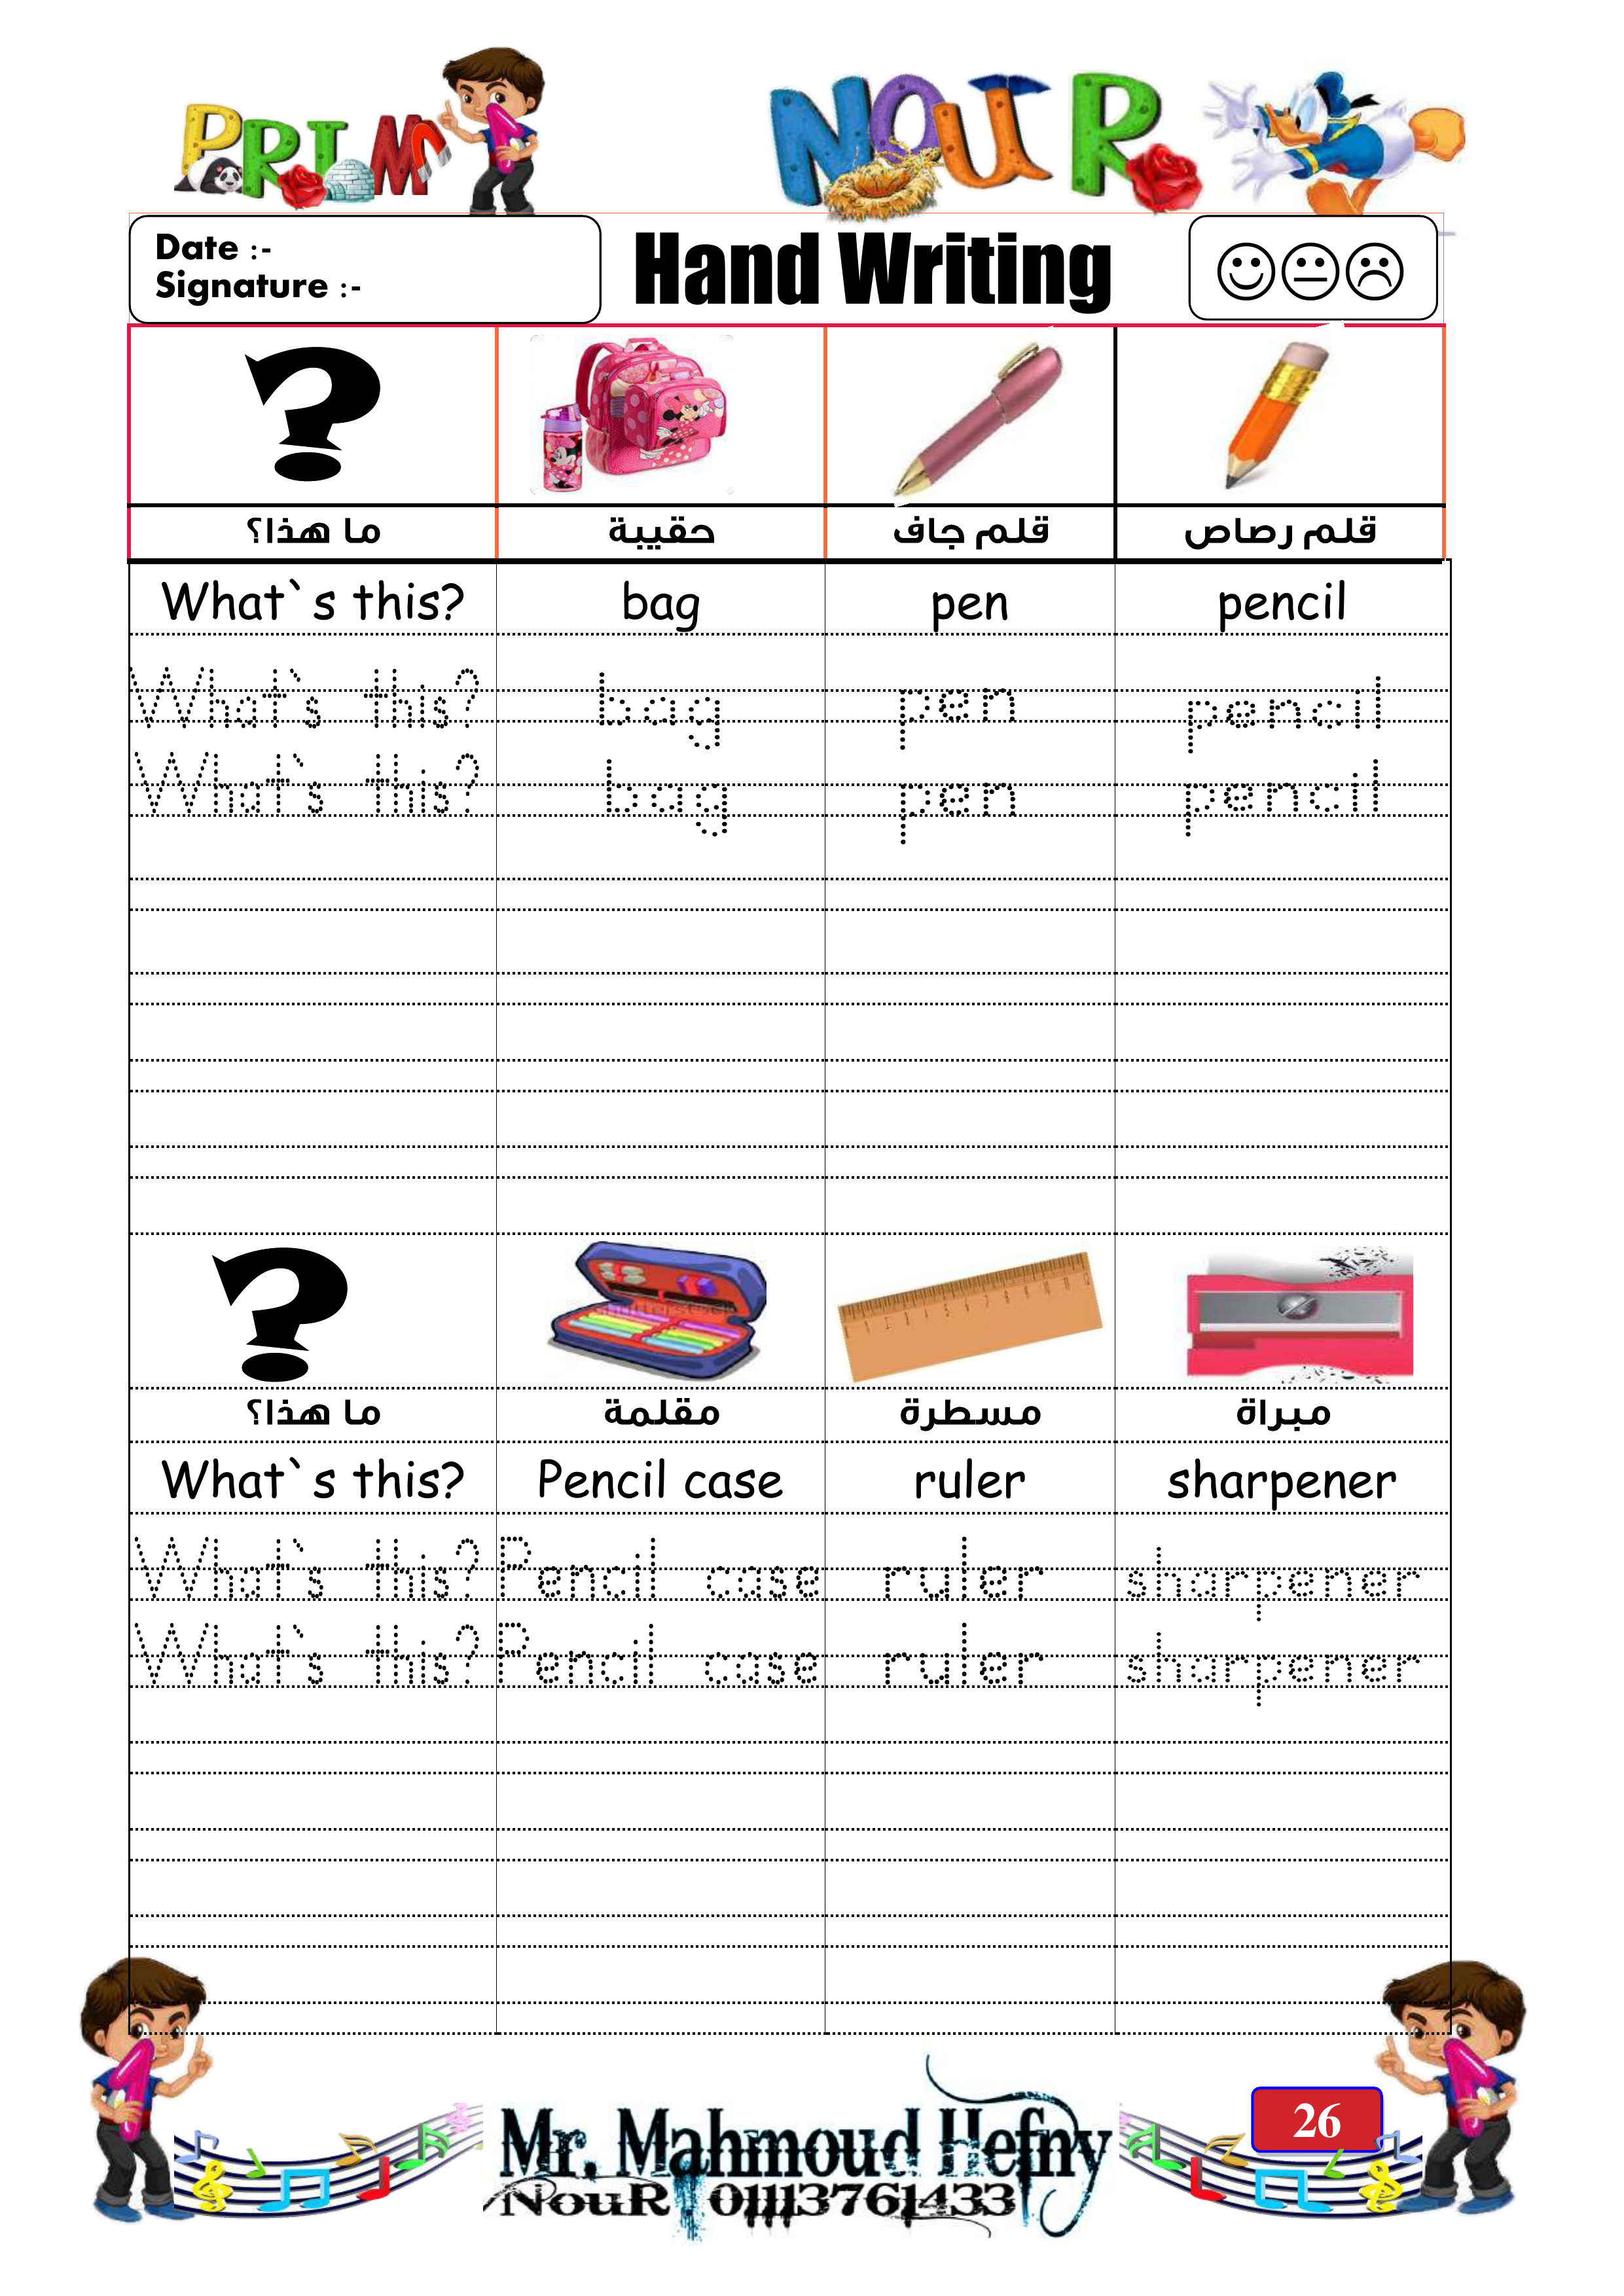 PRIM 1 NOUR
Date :-
Signature :-
Hand Writing
ما هذا؟ حقيبة قلم جاف قلم رصاص
What`s this? bag pen pencil
What`s this? bag pen pencil
What`s this? bag pen pencil
ما هذا؟ مقلمة مسطرة مبراة
What`s this? Pencil case ruler sharpener
What`s this? Pencil case ruler sharpener
What`s this? Pencil case ruler sharpener
26
Mr. Mahmoud Hefny
NouR 01113761433